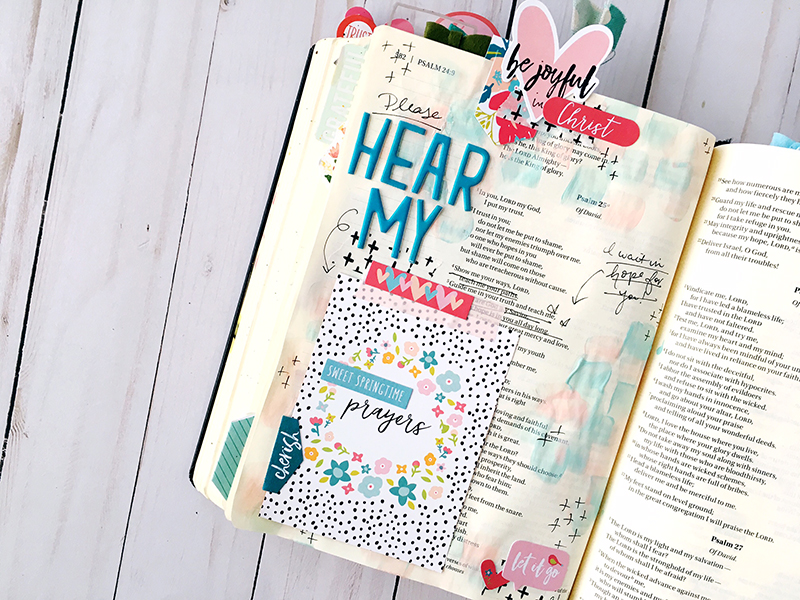 TRUST
182 | PSALM 24:9
be joyful
in
Christ
Please
HEAR
MY
he, this King of glory?
The LORD Almighty —
he is the King of glory.
Psalm 25
Of David.
In you, LORD my God,
I put my trust.
I trust in you;
do not let me be put to shame,
nor let my enemies triumph over me.
No one who hopes in you
will ever be put to shame,
but shame will come on those
who are treacherous without cause.
Show me your ways, LORD,
teach me your paths.
Guide me in your truth and teach me,
you all day long.
great mercy and love,
I wait in
hope for
you
SWEET SPRINGTIME
prayers
cherish
my youth
ers in his ways:
t is right
ving and faithful
demands of his covenant.
it is great.
ways they should choose.
prosperity,
inherit the land.
hose who fear him;
wn to them.
e LORD,
feet from the snare.
let it go
See how numerous are my
and how fiercely they
Guard my life and rescue
do not let me be put to shame,
for I take refuge in you.
May integrity and uprightness
because my hope, LORD,
Deliver Israel, O God,
from all their troubles!
Of David.
Vindicate me, LORD,
for I have led a blameless life;
I have trusted in the LORD
and have not faltered.
Test me, LORD, and try me,
examine my heart and my mind;
for I have always been mindful of your
and have lived in reliance on your
I do not sit with the deceitful,
nor do I associate with hypocrites.
I abhor the assembly of evildoers
and refuse to sit with the wicked.
I wash my hands in innocence,
and go about your altar, LORD,
proclaiming aloud your praise
and telling of all your wonderful deeds.
LORD, I love the house where you live,
the place where your glory dwells.
Do not take away my soul along with sinners,
my life with those who are bloodthirsty,
in whose hands are wicked schemes,
whose right hands are full of bribes.
I lead a blameless life;
deliver me and be merciful to me.
My feet stand on level ground;
in the great congregation I will praise the LORD.
Psalm 27
Of David.
The LORD is my light and my salvation —
whom shall I fear?
The LORD is the stronghold of my life —
of whom shall I be afraid?
When the wicked advance against me